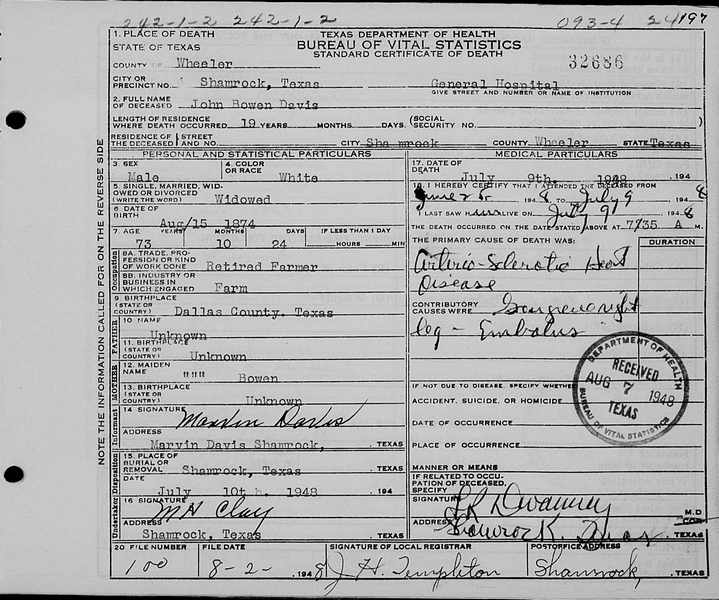 242-1-2 242-1-2 093-4 24197
1. PLACE OF DEATH
STATE OF TEXAS
TEXAS DEPARTMENT OF HEALTH
BUREAU OF VITAL STATISTICS
STANDARD CERTIFICATE OF DEATH
COUNTY OF Wheeler 32686
CITY OR
PRECINCT NO. Shamrock, Texas General Hospital
GIVE STREET AND NUMBER OR NAME OF INSTITUTION
2. FULL NAME
OF DECEASED John Bowen Davis
LENGTH OF RESIDENCE
WHERE DEATH OCCURRED 19 YEARS MONTHS DAYS (SOCIAL
SECURITY NO.
RESIDENCE OF STREET
THE DECEASED AND NO. CITY Shamrock COUNTY Wheeler STATE Texas
PERSONAL AND STATISTICAL PARTICULARS
3. SEX
Male
4. COLOR
OR RACE
White
5. SINGLE, MARRIED, WID-
OWED OR DIVORCED
(WRITE THE WORD) Widowed
6. DATE OF
BIRTH Aug/15 1874
7. AGE YEARS MONTHS DAYS IF LESS THAN 1 DAY
73 10 24 HOURS MIN
8A. TRADE, PRO-
FESSION OR KIND
OF WORK DONE Retired Farmer
8B. INDUSTRY OR
BUSINESS IN
WHICH ENGAGED Farm
9. BIRTHPLACE
(STATE OR
COUNTRY) Dallas County. Texas
10 NAME
Unknown
11. BIRTHPLACE
(STATE OR
COUNTRY) Unknown
12. MAIDEN
NAME """ Bowen
13. BIRTHPLACE
(STATE OR
COUNTRY) Unknown
14 SIGNATURE Marvin Davis
ADDRESS
Marvin Davis Shamrock, , TEXAS
15. PLACE OF
BURIAL OR
REMOVAL Shamrock, Texas , TEXAS
DATE
July 10th. 1948 , 194
16 SIGNATURE M H Clay
ADDRESS
Shamrock, Texas , TEXAS
MEDICAL PARTICULARS
17. DATE OF
DEATH July 9th. 1948 , 194
18. I HEREBY CERTIFY THAT I ATTENDED THE DECEASED FROM
194 8 TO July 9 194 8
I LAST SAW him ALIVE ON July 9 194 8
THE DEATH OCCURRED ON THE DATE STATED ABOVE AT 7/35 A M.
THE PRIMARY CAUSE OF DEATH WAS: DURATION
Arterio-Sclerotic Heart
Disease
CONTRIBUTORY
CAUSES WERE Gangrene right
leg - Embolus
IF NOT DUE TO DISEASE, SPECIFY WHETHER
ACCIDENT, SUICIDE, OR HOMICIDE
DATE OF OCCURRENCE
PLACE OF OCCURRENCE
MANNER OR MEANS
IF RELATED TO OCCU-
PATION OF DECEASED,
SPECIFY
SIGNATURE
M.D.
ADDRESS Shamrock, Texas , TEXAS
DEPARTMENT OF HEALTH
RECEIVED
AUG 7 1948
TEXAS
BUREAU OF VITAL STATISTICS
20 FILE NUMBER FILE DATE SIGNATURE OF LOCAL REGISTRAR POSTOFFICE ADDRESS
100 8-2- 194 8 J. H. Templeton Shamrock, , TEXAS
NOTE THE INFORMATION CALLED FOR ON THE REVERSE SIDE
Occupation
FATHER
MOTHER
Informant
Disposition
Undertaker